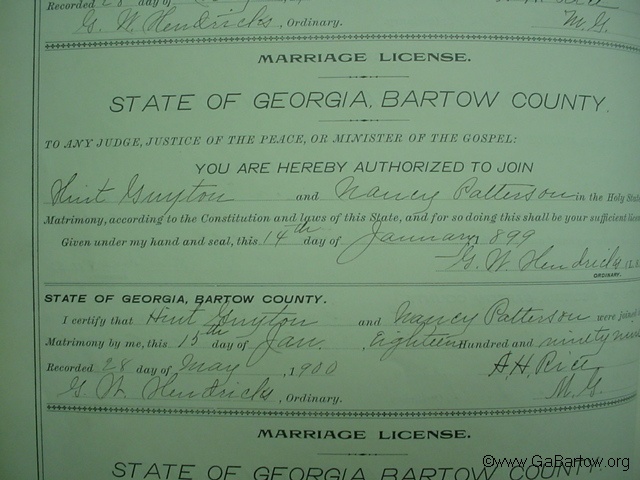 Recorded 28 day of
G. W. Hendricks, Ordinary. M. G.
MARRIAGE LICENSE.
STATE OF GEORGIA, BARTOW COUNTY.
TO ANY JUDGE, JUSTICE OF THE PEACE, OR MINISTER OF THE GOSPEL:
YOU ARE HEREBY AUTHORIZED TO JOIN
Hint Guyton and Nancy Patterson in the Holy State
Matrimony, according to the Constitution and laws of this State, and for so doing this shall be your sufficient licen
Given under my hand and seal, this 14th day of January, 1899
G. W. Hendricks (L.S.
ORDINARY.
STATE OF GEORGIA, BARTOW COUNTY.
I certify that Hint Guyton and Nancy Patterson were joined
Matrimony by me, this 15th day of Jan., Eighteen Hundred and ninety nine
Recorded 28 day of May, 1900 A. H. Rice
G. W. Hendricks, Ordinary. M. G.
MARRIAGE LICENSE.
STATE OF GEORGIA, BARTOW COUNTY.
©www.GaBartow.org